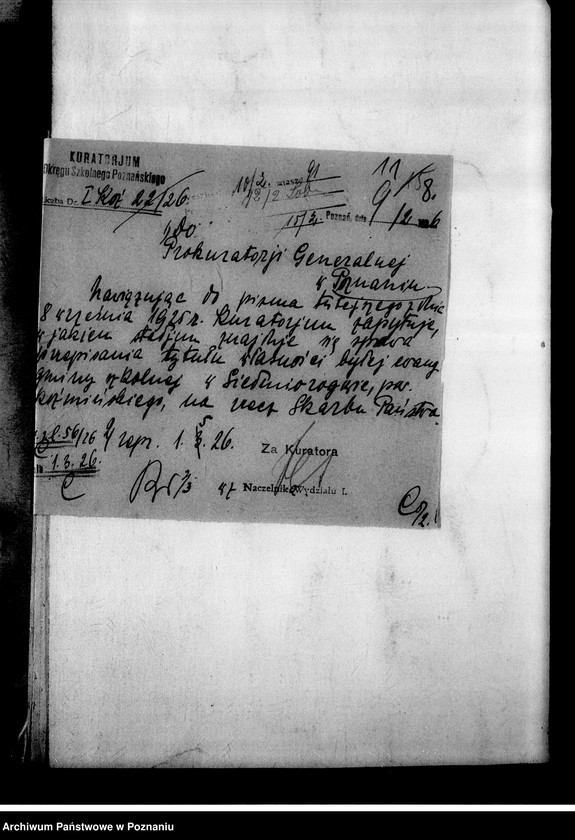 KURATORJUM
Okręgu Szkolnego Poznańskiego
Liczba Dz. I Koź 22/26.
10/2. 91
15/2. Poznań, dnia 9/2. 1926
11
158.
Do
Prokuratorji Generalnej
w Poznaniu
Nawiązując do pisma tutejszego z dnia
8 września 1925 r. Kuratorjum zapytuje,
w jakiem stadjum znajduje się sprawa
przepisania tytułu własności byłej ewang
gminy szkolnej w Siedmiorogowie, pow.
koźmińskiego, na rzecz Skarbu Państwa.
56/26
1. 3. 26.
1. 5. 26.
Za Kuratora
Naczelnik Wydziału I.
Archiwum Państwowe w Poznaniu